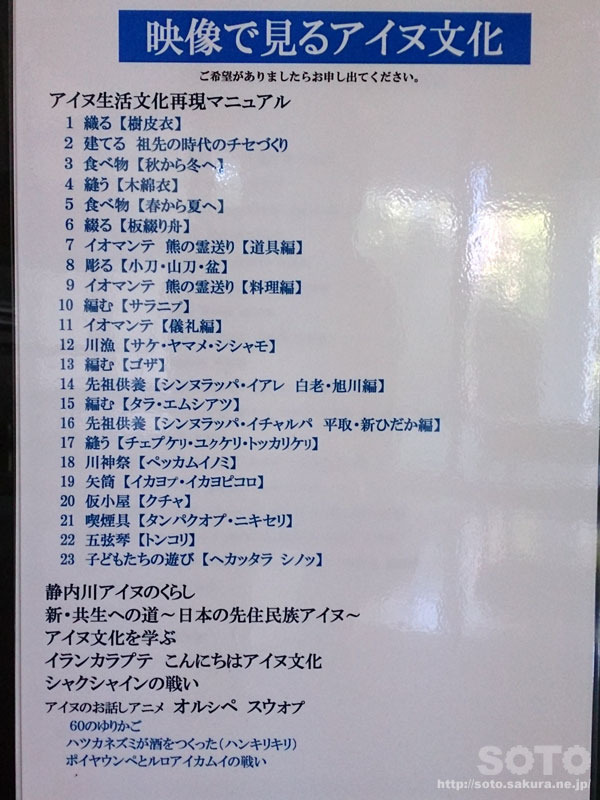 映像で見るアイヌ文化
ご希望がありましたらお申し出てください。
アイヌ生活文化再現マニュアル
1 織る【樹皮衣】
2 建てる 祖先の時代のチセづくり
3 食べ物【秋から冬へ】
4 縫う【木綿衣】
5 食べ物【春から夏へ】
6 綴る【板綴り舟】
7 イオマンテ 熊の霊送り【道具編】
8 彫る【小刀・山刀・盆】
9 イオマンテ 熊の霊送り【料理編】
10 編む【サラニㇷ゚】
11 イオマンテ【儀礼編】
12 川漁【サケ・ヤマメ・シシャモ】
13 編む【ゴザ】
14 先祖供養【シンヌラッパ・イアレ 白老・旭川編】
15 編む【タラ・エムシアツ】
16 先祖供養【シンヌラッパ・イチャルパ 平取・新ひだか編】
17 縫う【チェㇷ゚ケㇼ・ユㇰケㇼ・トッカリケㇼ】
18 川神祭【ペッカムイノミ】
19 矢筒【イカヨㇷ゚・イカヨピコロ】
20 仮小屋【クチャ】
21 喫煙具【タンパクオプ・ニキセリ】
22 五弦琴【トンコリ】
23 子どもたちの遊び【ヘカッタラ シノッ】
静内川アイヌのくらし
新・共生への道～日本の先住民族アイヌ～
アイヌ文化を学ぶ
イランカラプテ こんにちはアイヌ文化
シャクシャインの戦い
アイヌのお話しアニメ オルシペ スウォプ
60のゆりかご
ハツカネズミが酒をつくった（ハンキリキリ）
ポイヤウンペとルロアイカムイの戦い
SOTO
http://soto.sakura.ne.jp/